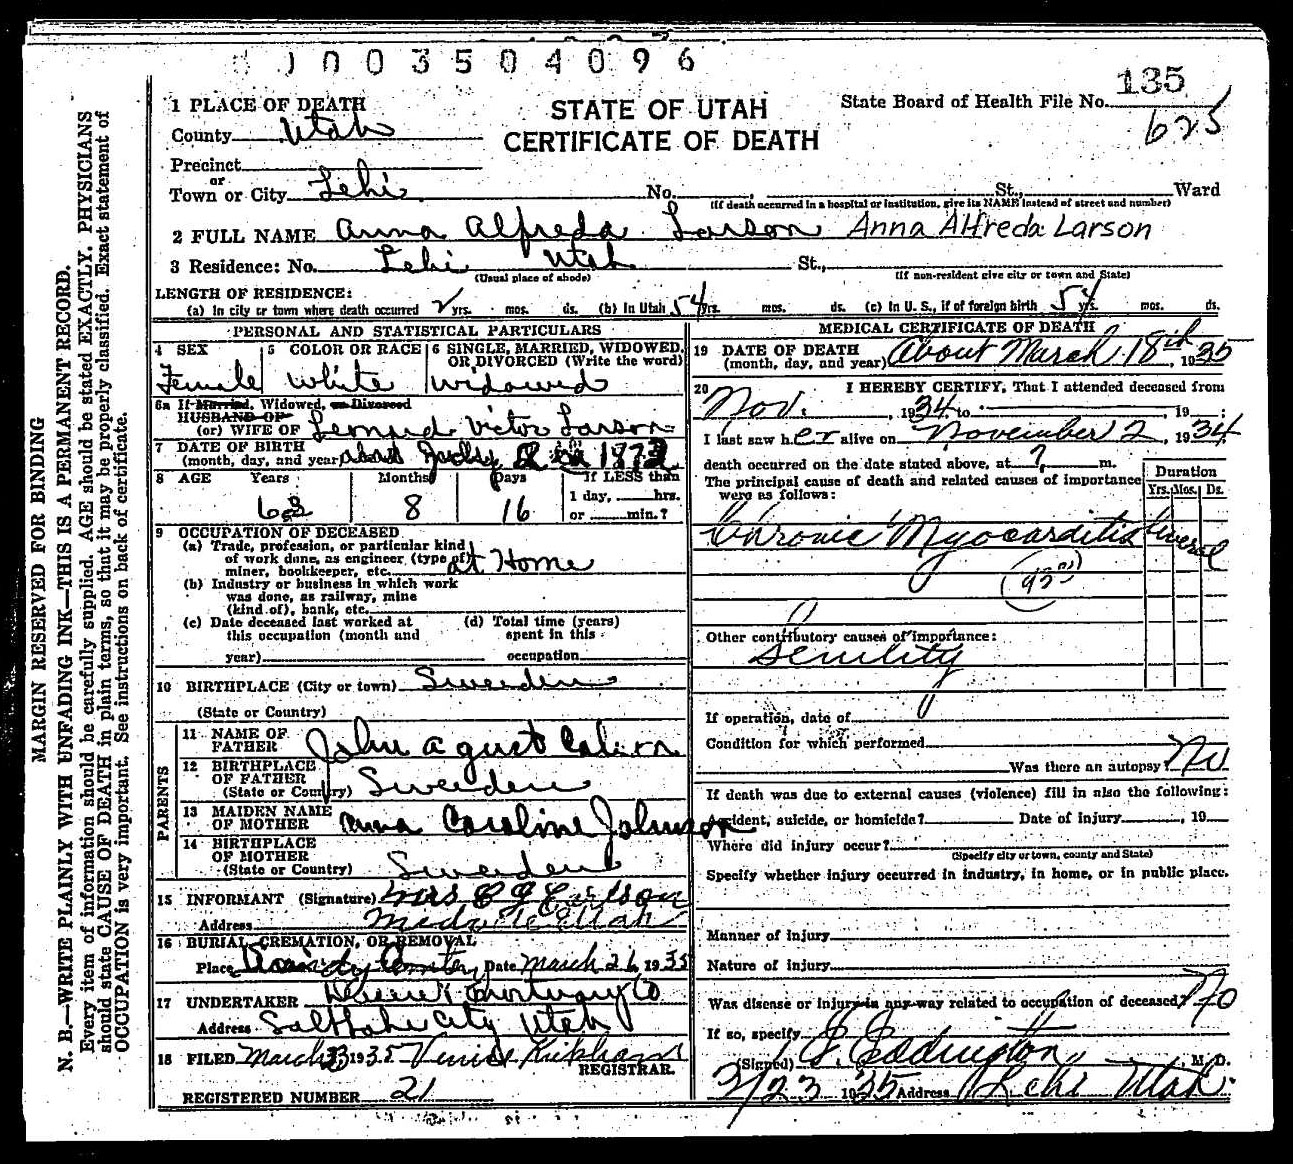 0 0 3 5 0 4 0 9 6
STATE OF UTAH
CERTIFICATE OF DEATH
State Board of Health File No. 135
625
1 PLACE OF DEATH
County Utah
Precinct
or
Town or City Lehi No. , St., Ward
(If death occurred in a hospital or institution, give its NAME instead of street and number)
2 FULL NAME Anna Alfreda Larson Anna Alfreda Larson
3 Residence: No. Lehi Utah St.,
(Usual place of abode) (If non-resident give city or town and State)
LENGTH OF RESIDENCE:
(a) In city or town where death occurred 2 yrs. mos. ds. (b) In Utah 54 yrs. mos. ds. (c) In U. S., if of foreign birth 54 yrs. mos. ds.
PERSONAL AND STATISTICAL PARTICULARS
4 SEX 5 COLOR OR RACE 6 SINGLE, MARRIED, WIDOWED, OR DIVORCED (Write the word)
Female White Widowed
6a If Married, Widowed, or Divorced
HUSBAND OF
(or) WIFE OF Leonard Victor Larson
7 DATE OF BIRTH
(month, day, and year) about July 2
8 AGE Years Months Days If LESS than
1 day, hrs.
63 8 16 or min.?
9 OCCUPATION OF DECEASED
(a) Trade, profession, or particular kind
of work done, as engineer (type of)
miner, bookkeeper, etc. at Home
(b) Industry or business in which work
was done, as railway, mine
(kind of), bank, etc.
(c) Date deceased last worked at
this occupation (month and
year)
(d) Total time (years)
spent in this
occupation
10 BIRTHPLACE (City or town) Sweeden
(State or Country)
PARENTS
11 NAME OF
FATHER John Agust
12 BIRTHPLACE
OF FATHER
(State or Country) Sweeden
13 MAIDEN NAME
OF MOTHER Anna Caroline Johnson
14 BIRTHPLACE
OF MOTHER
(State or Country) Sweeden
15 INFORMANT (Signature) Mrs C G Carlson
Address Midvale Utah
16 BURIAL, CREMATION, OR REMOVAL
Place Date March 26, 1935
17 UNDERTAKER Deseret Mortuary Co
Address Salt Lake City Utah
18 FILED March 23 1935 Kirkham
REGISTRAR.
REGISTERED NUMBER 21
MEDICAL CERTIFICATE OF DEATH
19 DATE OF DEATH
(month, day, and year) About March 18th, 1935
20 I HEREBY CERTIFY, That I attended deceased from
Nov. , 1934 to , 19 ;
I last saw her alive on November 2, 1934
death occurred on the date stated above, at ? m.
The principal cause of death and related causes of importance
were as follows:
Duration
Yrs. Mos. Ds.
Chronic Myocarditis Several
Other contributory causes of importance:
Senility
If operation, date of
Condition for which performed
Was there an autopsy? No
If death was due to external causes (violence) fill in also the following:
Accident, suicide, or homicide? Date of injury , 19
Where did injury occur?
(Specify city or town, county and State)
Specify whether injury occurred in industry, in home, or in public place.
Manner of injury
Nature of injury
Was disease or injury in any way related to occupation of deceased? No
If so, specify
(Signed) Eddington , M. D.
3/23 1935 Address Lehi Utah
MARGIN RESERVED FOR BINDING
N. B.—WRITE PLAINLY WITH UNFADING INK—THIS IS A PERMANENT RECORD.
Every item of information should be carefully supplied. AGE should be stated EXACTLY. PHYSICIANS
should state CAUSE OF DEATH in plain terms, so that it may be properly classified. Exact statement of
OCCUPATION is very important. See instructions on back of certificate.